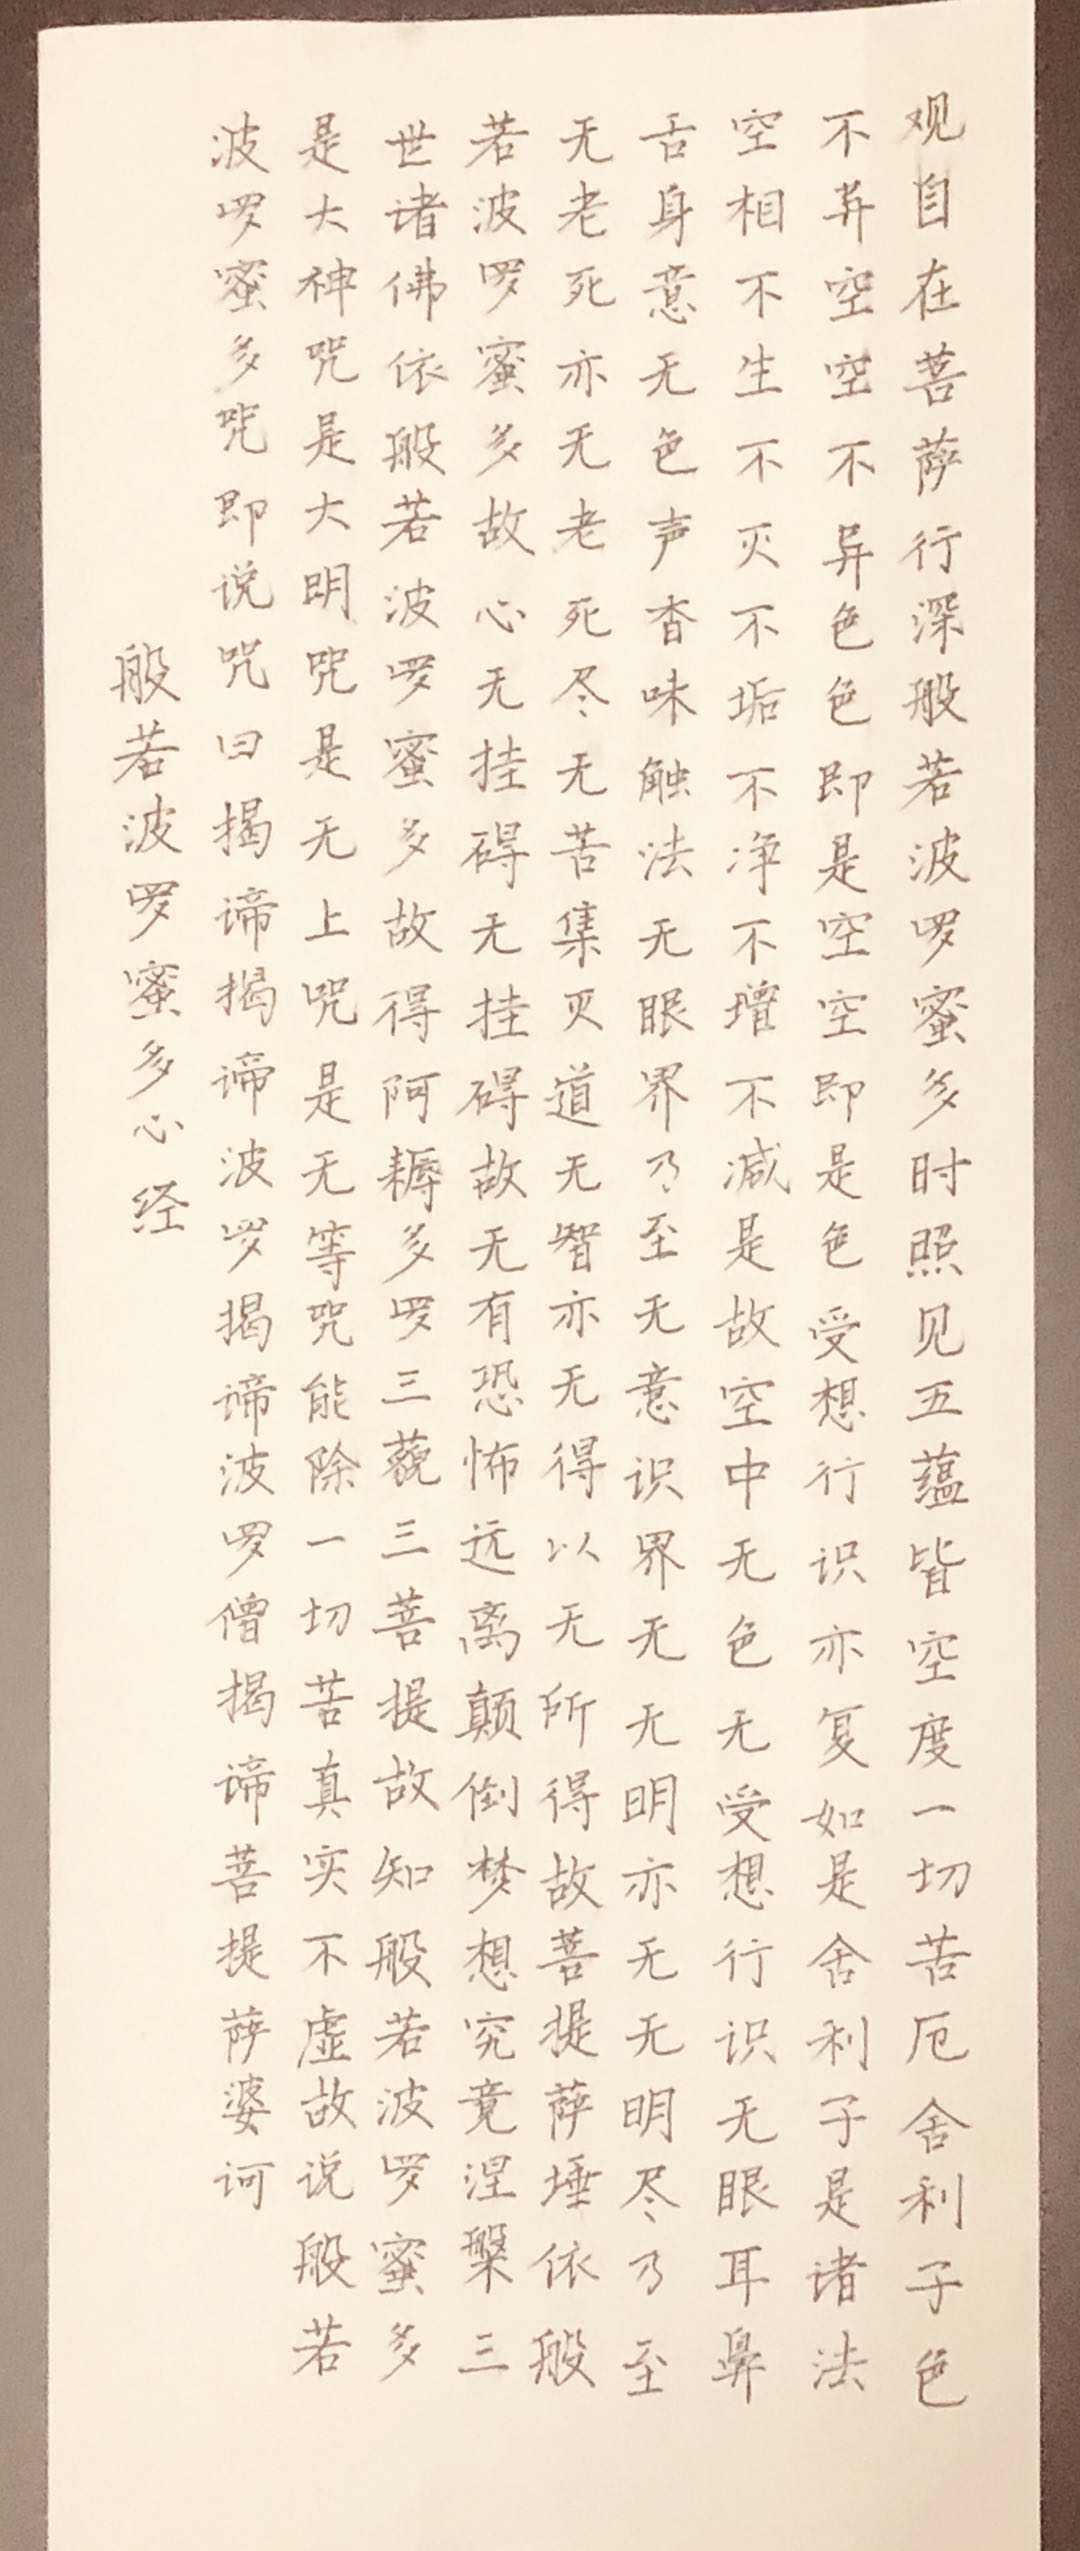 观自在菩萨行深般若波罗蜜多时照见五蕴皆空度一切苦厄舍利子色
不异空空不异色色即是空空即是色受想行识亦复如是舍利子是诸法
空相不生不灭不垢不净不增不减是故空中无色无受想行识无眼耳鼻
舌身意无色声香味触法无眼界乃至无意识界无无明亦无无明尽乃至
无老死亦无老死尽无苦集灭道无智亦无得以无所得故菩提萨埵依般
若波罗蜜多故心无挂碍无挂碍故无有恐怖远离颠倒梦想究竟涅槃三
世诸佛依般若波罗蜜多故得阿耨多罗三藐三菩提故知般若波罗蜜多
是大神咒是大明咒是无上咒是无等咒能除一切苦真实不虚故说般若
波罗蜜多咒即说咒曰揭谛揭谛波罗揭谛波罗僧揭谛菩提萨婆诃
般若波罗蜜多心经